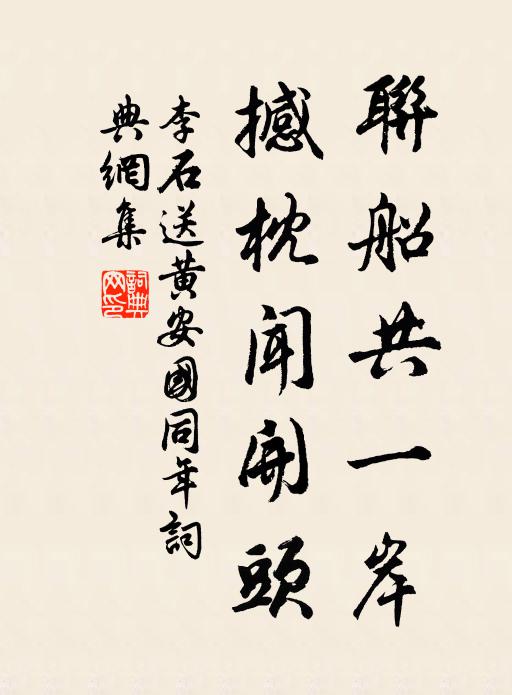 聯船共一岸
撼枕聞開頭
李石送黄安國同年詞
典網集
詞典
网印